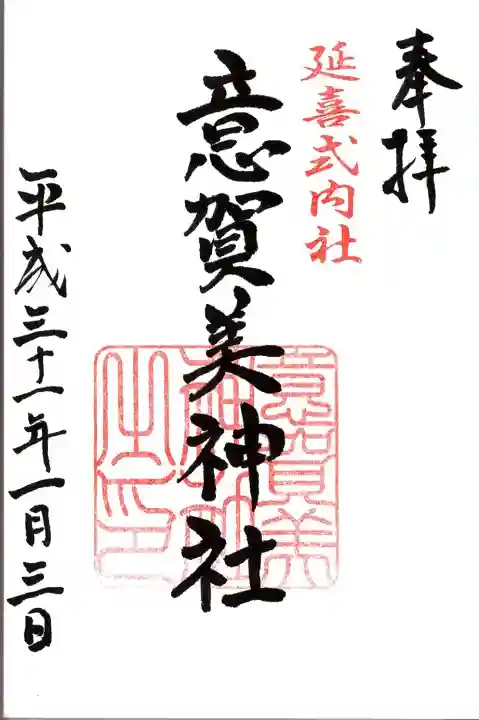 奉拝
延喜式内社
意賀美神社
意賀美
神社
之印
平成三十一年一月三日